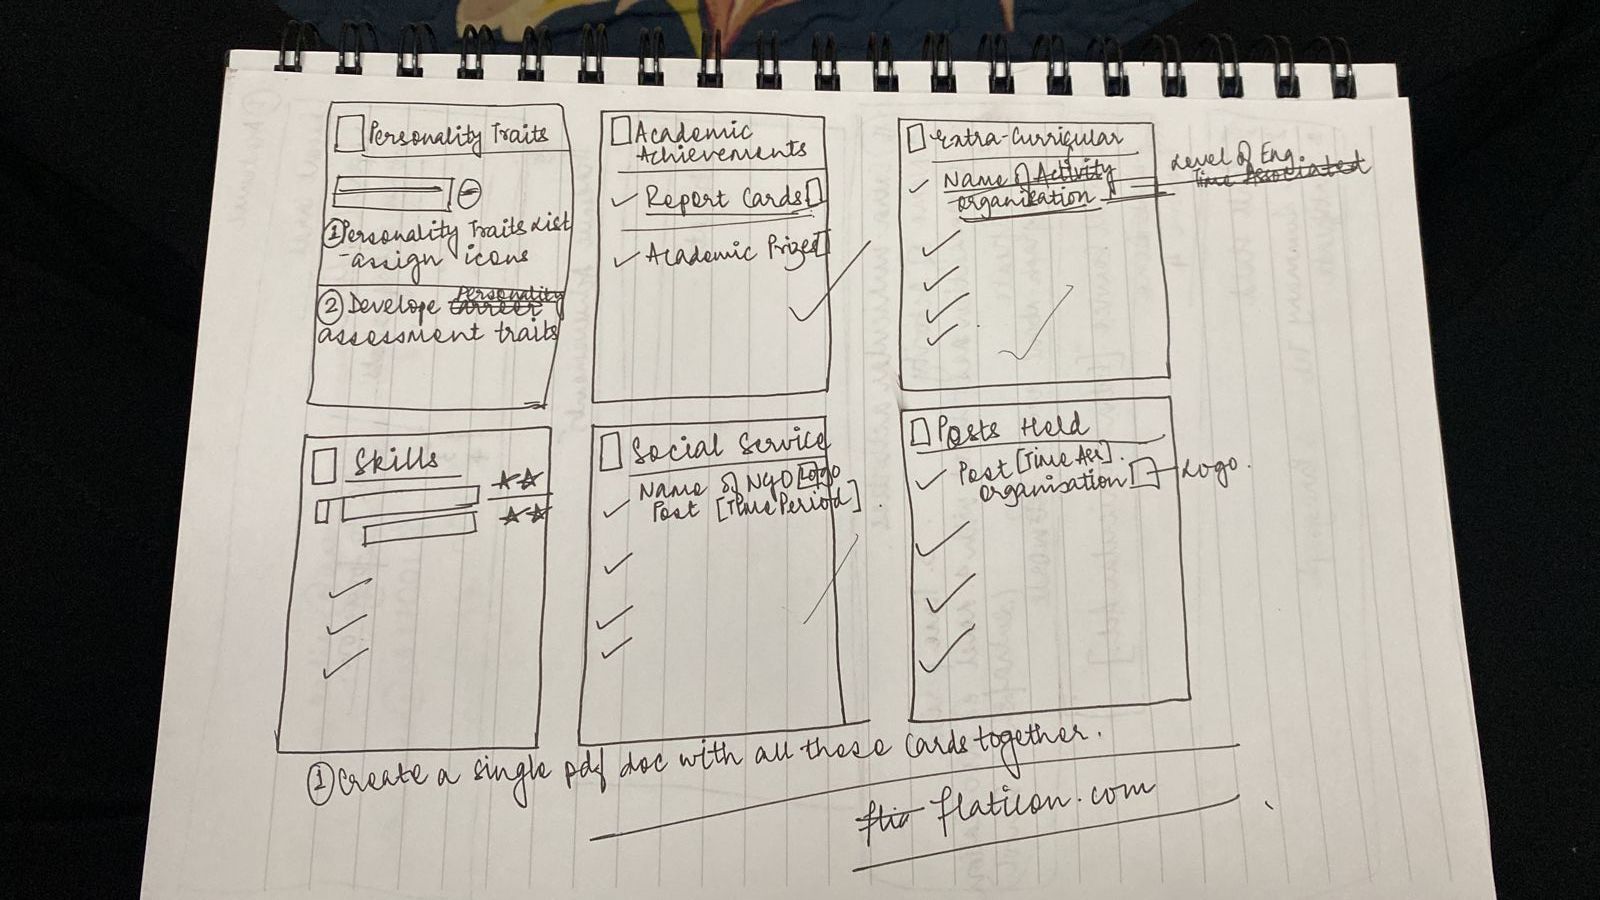 Personality Traits
① Personality Traits List
- assign icons
② Develope Personality
assessment traits
Academic
Achievements
Report Cards
Academic Prizes
Extra-Curricular
Name of Activity
organisation
Level of Eng.
Time Associated
Skills
Social Service
Name of NGO [Logo
Post [Time Period]
Posts Held
Post [Time Ass].
Organisation
Logo.
① Create a single pdf doc with all these cards together.
flaticon.com